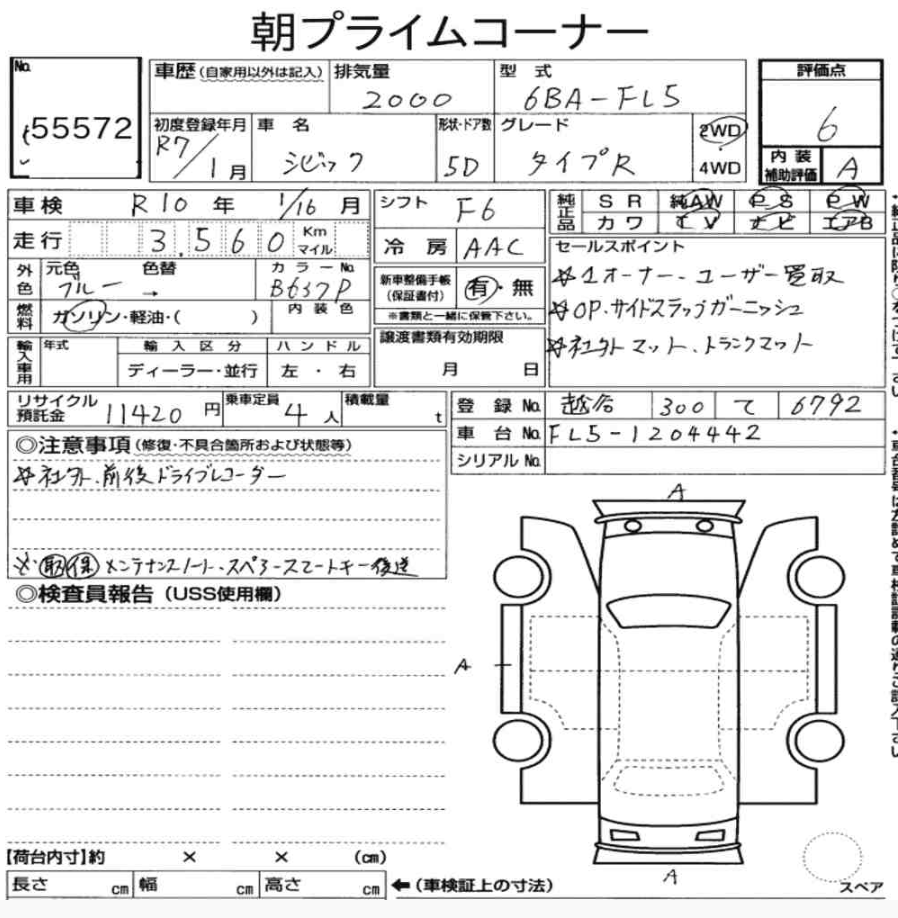 朝プライムコーナー
No. 55572
車歴(自家用以外は記入)
排気量 2000
型式 6BA-FL5
評価点 6
初度登録年月 R7/1月
車名 シビック
形状・ドア数 5D
グレード タイプR
2WD
4WD
内装補助評価 A
車検 R10年 1/16月
シフト F6
純正品 SR 純AW PS PW
カワ TV ナビ エアB
走行 3,560 Km マイル
冷房 AAC
セールスポイント
外色 元色 ブルー 色替 →
カラーNo. B637P
内装色
新車整備手帳(保証書付) 有・無
※書類と一緒に保管下さい。
☆1オーナー、ユーザー買取
☆OP.サイドステップガーニッシュ
☆社外マット、トランクマット
燃料 ガソリン・軽油・( )
譲渡書類有効期限
月 日
輸入車用 年式 輸入区分 ハンドル
ディーラー・並行 左・右
リサイクル預託金 11420円
乗車定員 4人
積載量 t
登録No. 越谷 300 て 6792
車台No. FL5-1204442
シリアルNo.
◎注意事項(修復・不具合箇所および状態等)
☆社外.前後ドライブレコーダー
☆取保メンテナンスノート、スペアースマートキー後送
◎検査員報告(USS使用欄)
A
A
A
【荷台内寸】約 × × (cm)
長さ cm 幅 cm 高さ cm
←(車検証上の寸法)
スペア